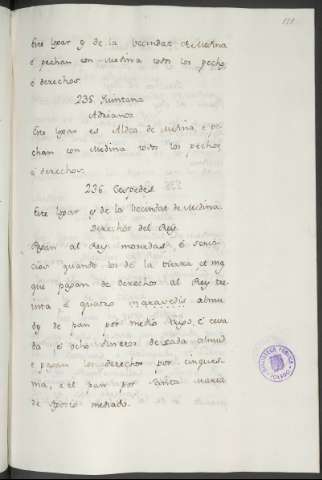 121
Este logar es de la Vecindat de Medina
é pechan con Medina todos los pechos
é derechos.
235. Quintana
Adrianos
Este logar es Aldea de Medina, é pe-
chan con Medina todos los pechos,
é derechos.
236. Cespedes
Este logar es de la Vecindat de Medina
Derechos del Rey
Pagan al Rey monedas é servi-
cios quando los de la tierra et
que pagan de derechos al Rey tre-
inta é quatro maravedis almu
de pan por medio trigo, é ceva
da é ocho dineros de cada almud
é pagan los derechos por cinques-
ma, é el pan por Santa Maria
de Agosto mediado.
BIBLIOTECA PUBLICA
TOLEDO